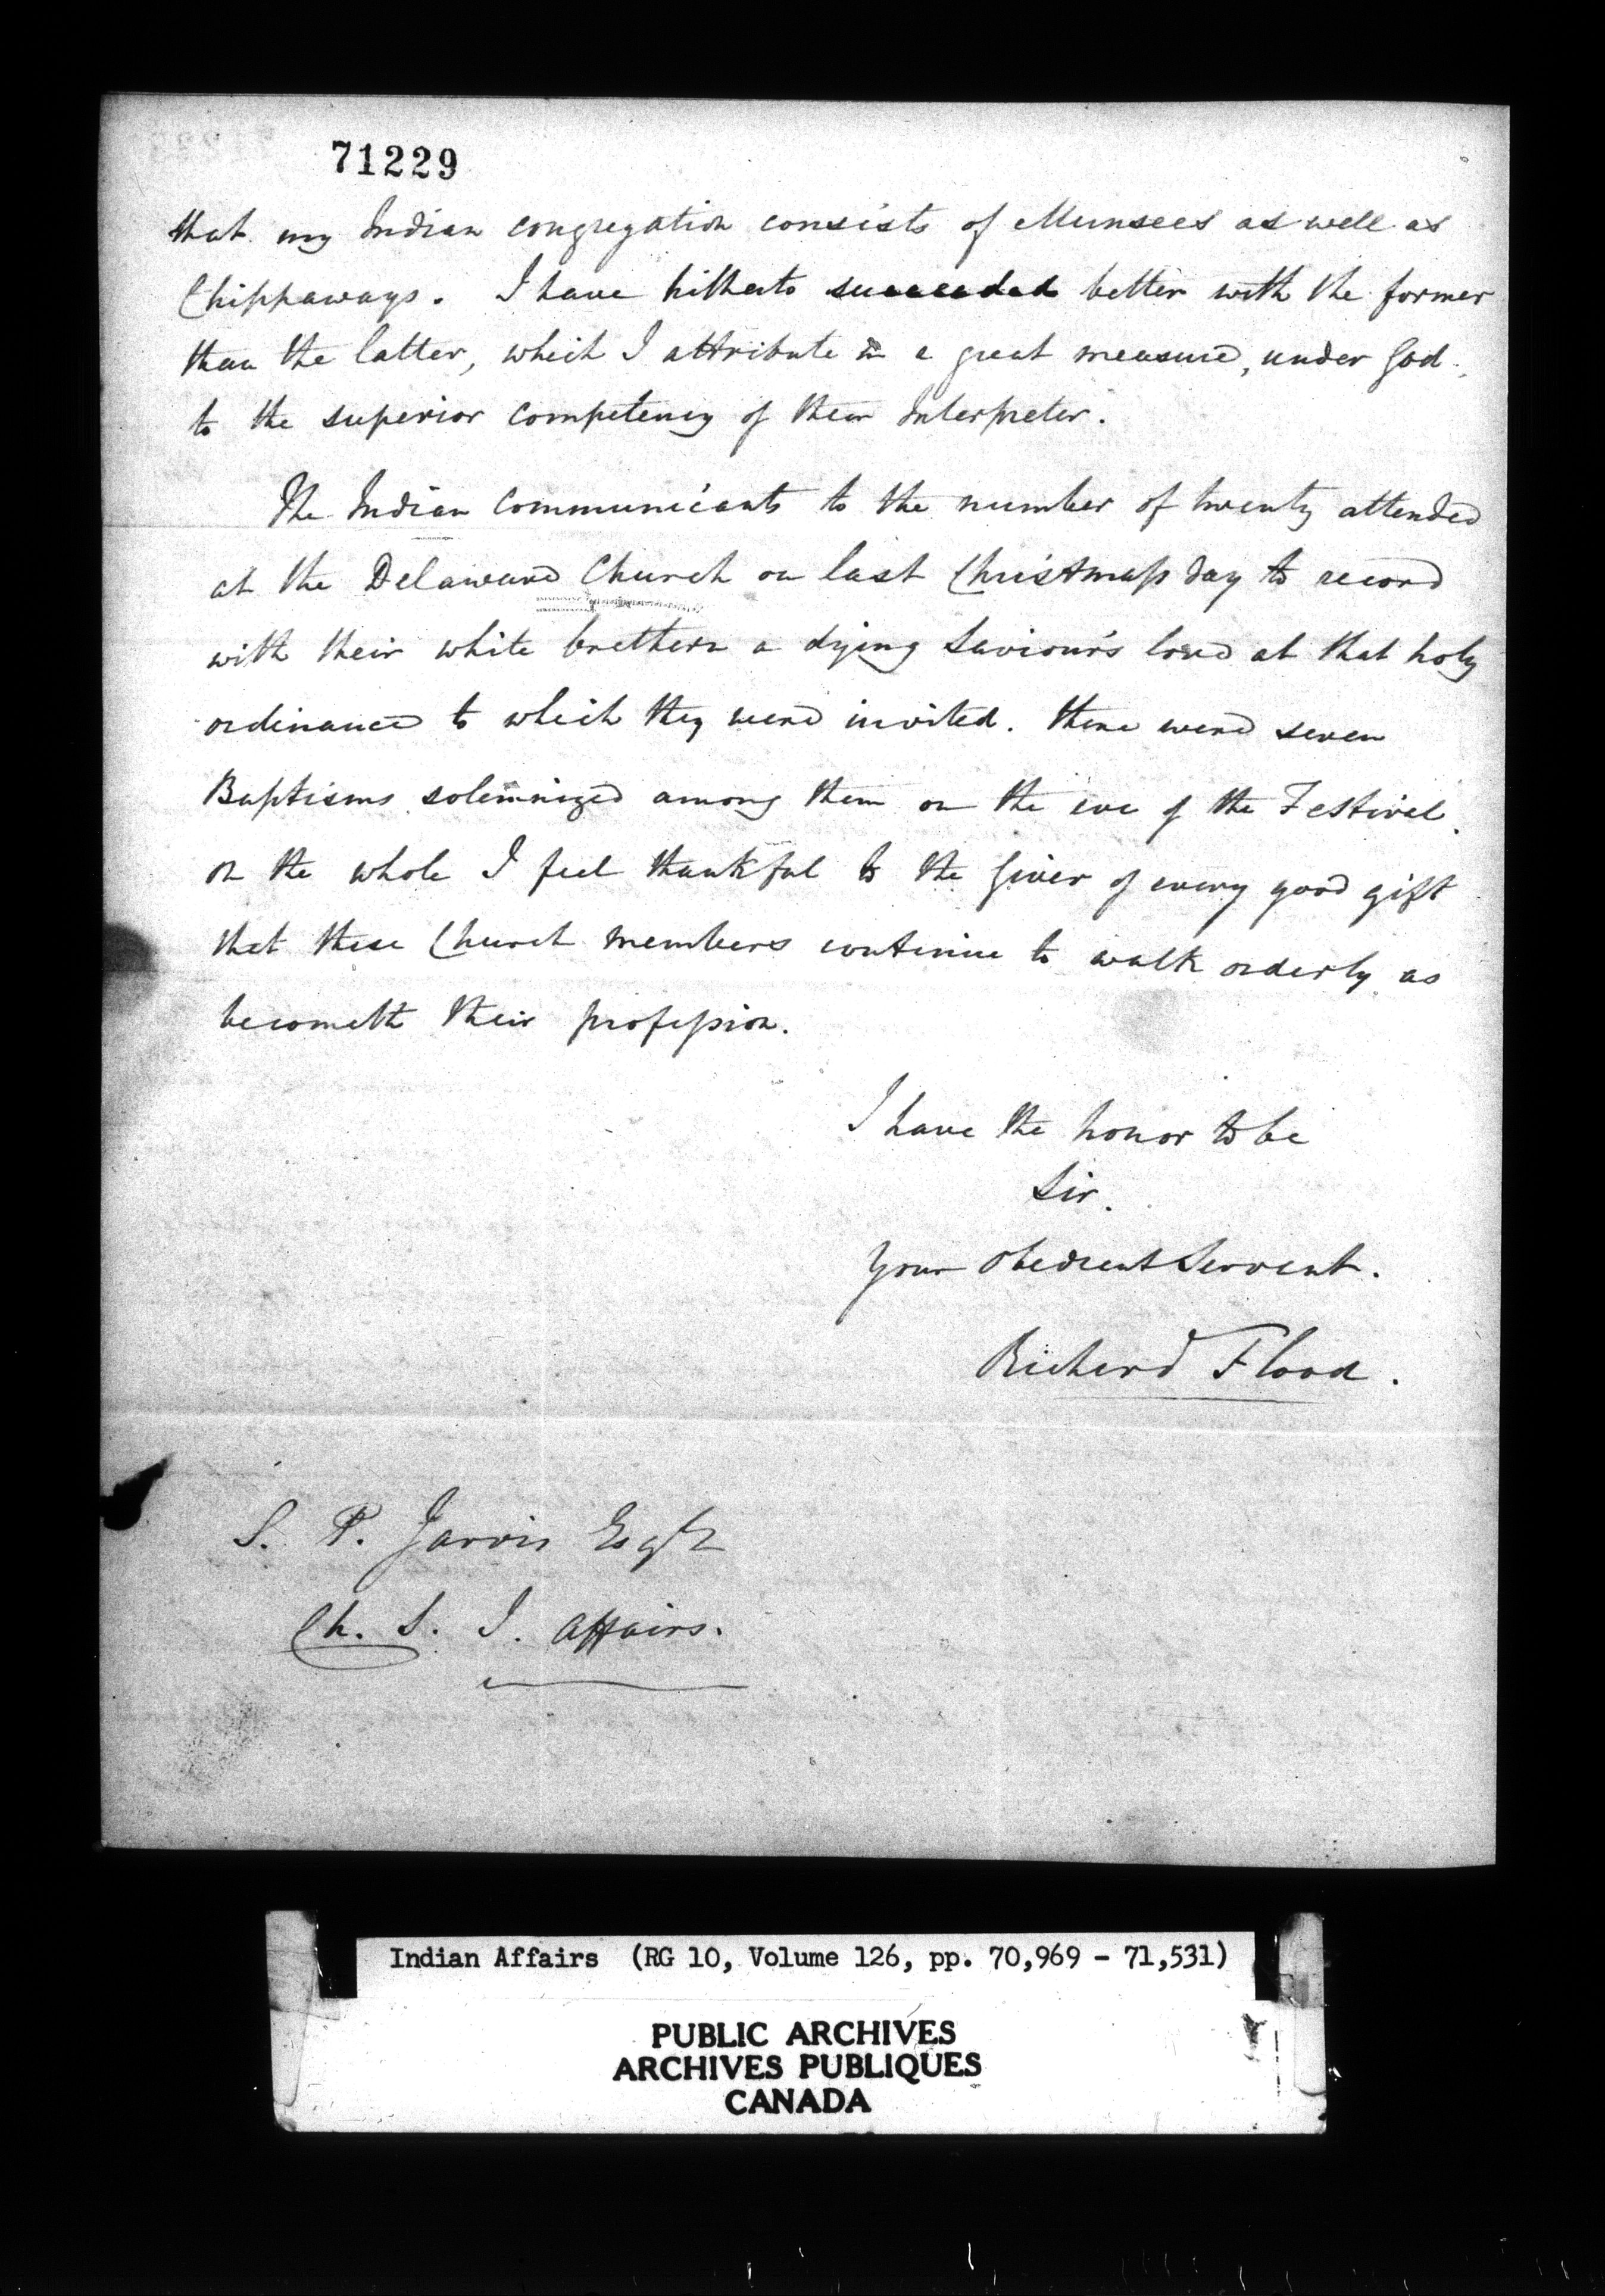 71229
that my Indian congregation consists of Munsees as well as
Chippaways. I have hitherto succeeded better with the former
than the latter, which I attribute in a great measure, under God,
to the superior competency of their Interpreter.
The Indian communicants to the number of twenty attended
at the Delaware Church on last Christmass day to record
with their white brethern a dying Saviour's love at that holy
ordinance to which they were invited. there were seven
Baptisms solemnized among them on the eve of the Festival.
on the whole I feel thankful to the Giver of every good gift
that these Church members continue to walk orderly as
becometh their profession.
I have the honor to be
Sir.
Your obedient Servant.
Richard Flood.
S. P. Jarvis Esqr
Ch. S. I. Affairs.
Indian Affairs (RG 10, Volume 126, pp. 70,969 - 71,531)
PUBLIC ARCHIVES
ARCHIVES PUBLIQUES
CANADA